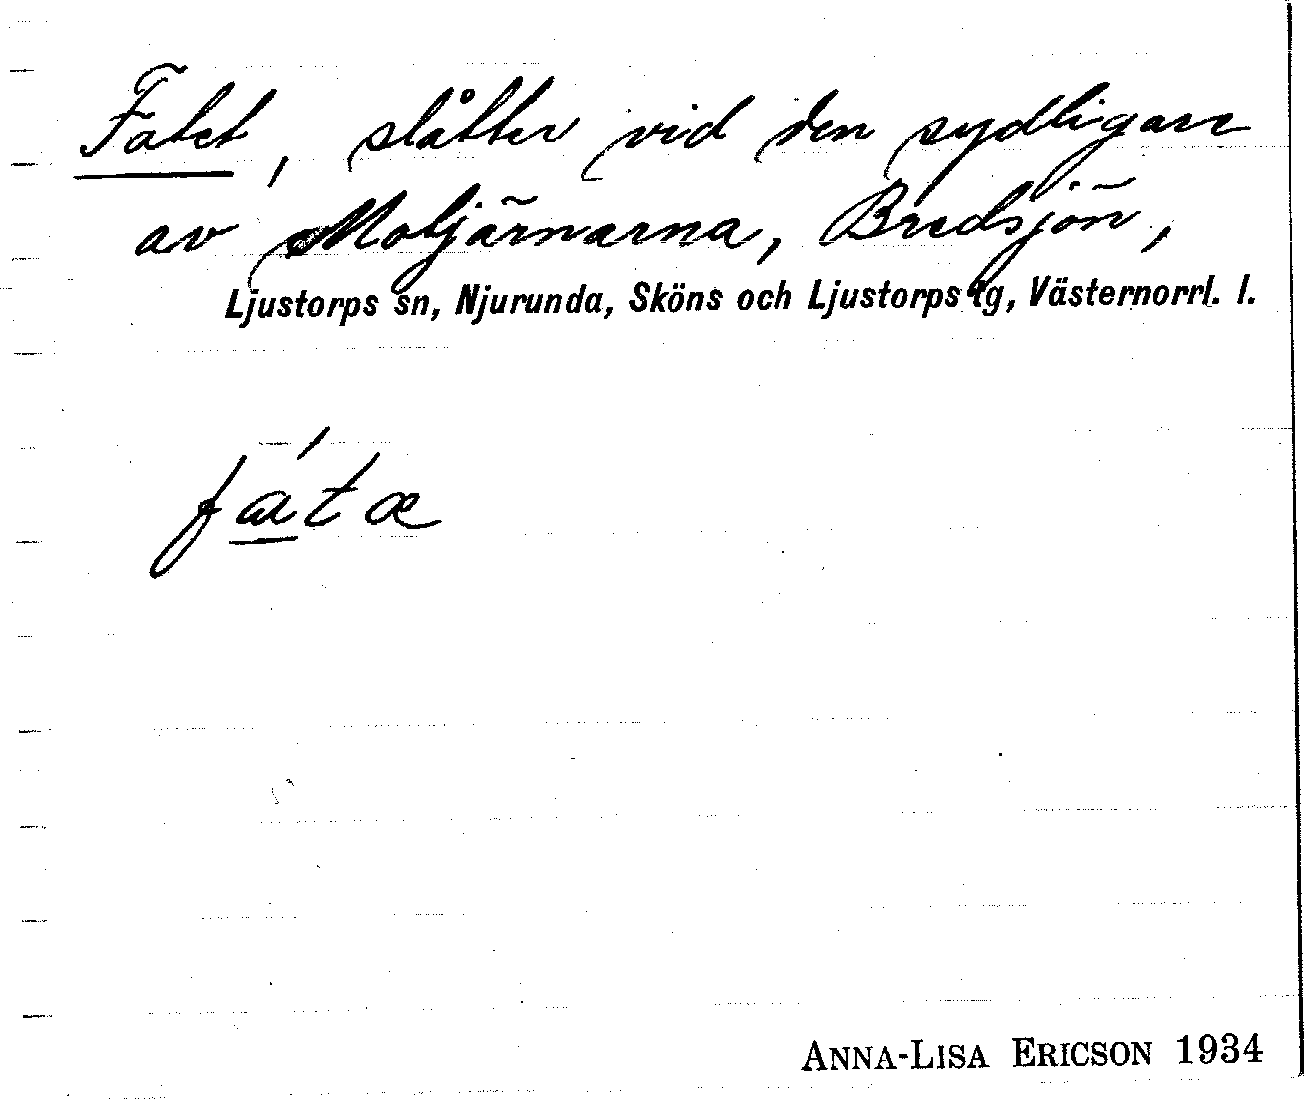 Fatet, slåtter vid den sydligare
av Motjärnarna, Bredsjön,
Ljustorps sn, Njurunda, Sköns och Ljustorps tg, Västernorrl. l.
fá̲tæ
ANNA-LISA ERICSON 1934